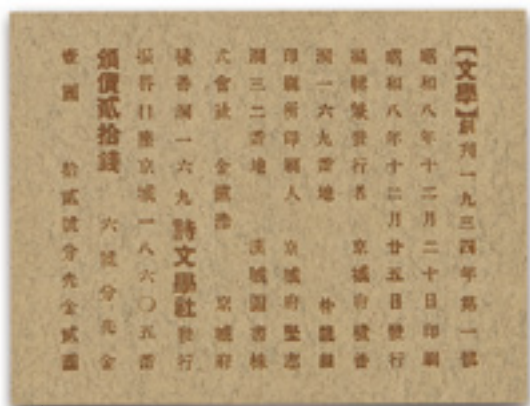 【文學】創刊一九三四年第一號
昭和八年十二月二十日印刷
昭和八年十二月廿五日發行
編輯兼發行者 京城府積善
洞一六九番地 朴龍喆
印刷所印刷人 京城府堅志
洞三二番地 漢城圖書株
式會社 京城府
積善洞一六九 詩文學社 發行
振替口座京城一八六〇五番
頒價貳拾錢 六號分先金
壹圓 拾貳號分先金貳圓